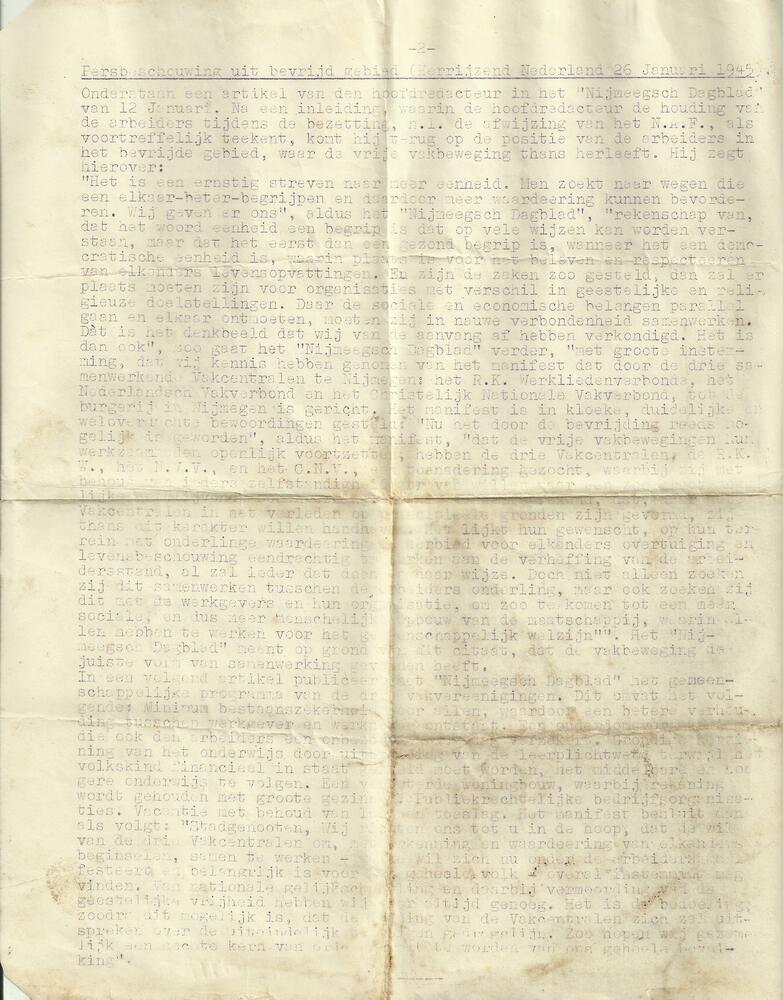 -2-
Persbeschouwing uit bevrijd gebied (Herrijzend Nederland 26 Januari 1945).
Onderstaan een artikel van den hoofdredacteur in het "Nijmeegsch Dagblad"
van 12 Januari. Na een inleiding, waarin de hoofdredacteur de houding van
de arbeiders tijdens de bezetting, n.l. de afwijzing van het N.A.F., als
voortreffelijk teekent, komt hij terug op de positie van de arbeiders in
het bevrijde gebied, waar de vrije vakbeweging thans herleeft. Hij zegt
hierover:
"Het is een ernstig streven naar meer eenheid. Men zoekt naar wegen die
een elkaar-beter-begrijpen en daardoor meer waardeering kunnen bevorde-
ren. Wij geven er ons", aldus het "Nijmeegsch Dagblad", "rekenschap van,
dat het woord eenheid een begrip is dat op vele wijzen kan worden ver-
staan, maar dat het eerst dan een gezond begrip is, wanneer het een demo-
cratische eenheid is, waarin plaats is voor het beleven en respecteeren
van elkanders levensopvattingen. En zijn de zaken zoo gesteld, dan zal er
plaats moeten zijn voor organisaties met verschil in geestelijke en reli-
gieuze doelstellingen. Daar de sociale en economische belangen parallel
gaan en elkaar ontmoeten, moeten zij in nauwe verbondenheid samenwerken.
Dàt is het denkbeeld dat wij van de aanvang af hebben verkondigd. Het is
dan ook", zoo gaat het "Nijmeegsch Dagblad" verder, "met groote instem-
ming, dat wij kennis hebben genomen van het manifest dat door de drie sa-
menwerkende Vakcentralen te Nijmegen: het R.K. Werkliedenverbond, het
Nederlandsch Vakverbond en het Christelijk Nationale Vakverbond, tot de
burgerij in Nijmegen is gericht. Het manifest is in kloeke, duidelijke en
weloverdachte bewoordingen gesteld: "Nu het door de bevrijding reeds mo-
gelijk is geworden", aldus het manifest, "dat de vrije vakbewegingen hun
werkzaamheden openlijk voortzetten, hebben de drie Vakcentralen, de R.K.
W., het N.V.V., en het C.N.V., toenadering gezocht, waarbij zij
behoud van ieders zelfstandigheid
lijk
Vakcentralen in het verleden op principieele gronden zijn gevormd, zij
thans dit karakter willen handhaven. Het lijkt hun gewenscht, op hun ter-
rein met onderlinge waardeering en eerbied voor elkanders overtuiging en
levensbeschouwing eendrachtig te werken aan de verheffing van de arbei-
dersstand, al zal ieder dat doen op haar wijze. Doch niet alleen zoeken
zij dit samenwerken tusschen de arbeiders onderling, maar ook zoeken zij
dit met de werkgevers en hun organisatie, om zoo te komen tot een meer
sociale, en dus meer menschelijke opbouw van de maatschappij, waarin al-
len hebben te werken voor het gemeenschappelijk welzijn"". Het "Nij-
meegsch Dagblad" meent op grond van dit citaat, dat de vakbeweging de
juiste vorm van samenwerking gevonden heeft.
In een volgend artikel publiceert het "Nijmeegsch Dagblad" het gemeen-
schappelijke programma van de drie vakvereenigingen. Dit omvat het vol-
gende: Minimum bestaanszekerheid voor allen, waardoor een betere verhou-
ding tusschen werkgever en werk
die ook den arbeiders een
ning van het onderwijs door uit van de leerplichtwet, terwijl het
volkskind financieel in staat gesteld moet worden, het middelbare en hoo-
gere onderwijs te volgen. Een woningbouw, waarbij rekening
wordt gehouden met groote gezinnen. Publiekrechtelijke bedrijfsorganisa-
ties. Vacantie met behoud van loon en toeslag. Het manifest besluit dan
als volgt: "Stadgenooten, Wij richten ons tot u in de hoop, dat de wil
van de drie Vakcentralen om, met erkenning en waardeering van elkanders
beginselen, samen te werken - wil zich nu onder de arbeiders
festeert en belangrijk is voor geheele volk - overal instemming mag
vinden. Van nationale gelijkschakeling en daarbij vermoording van de
geestelijke vrijheid hebben wij voor altijd genoeg. Het is de bedoeling,
zoodra dit mogelijk is, dat de leiding van de Vakcentralen zich zal uit-
spreken over de uiteindelijke gedragslijn. Zoo hopen wij gezamen-
lijk een hechte kern van te worden van ons geheele bevol-
king".